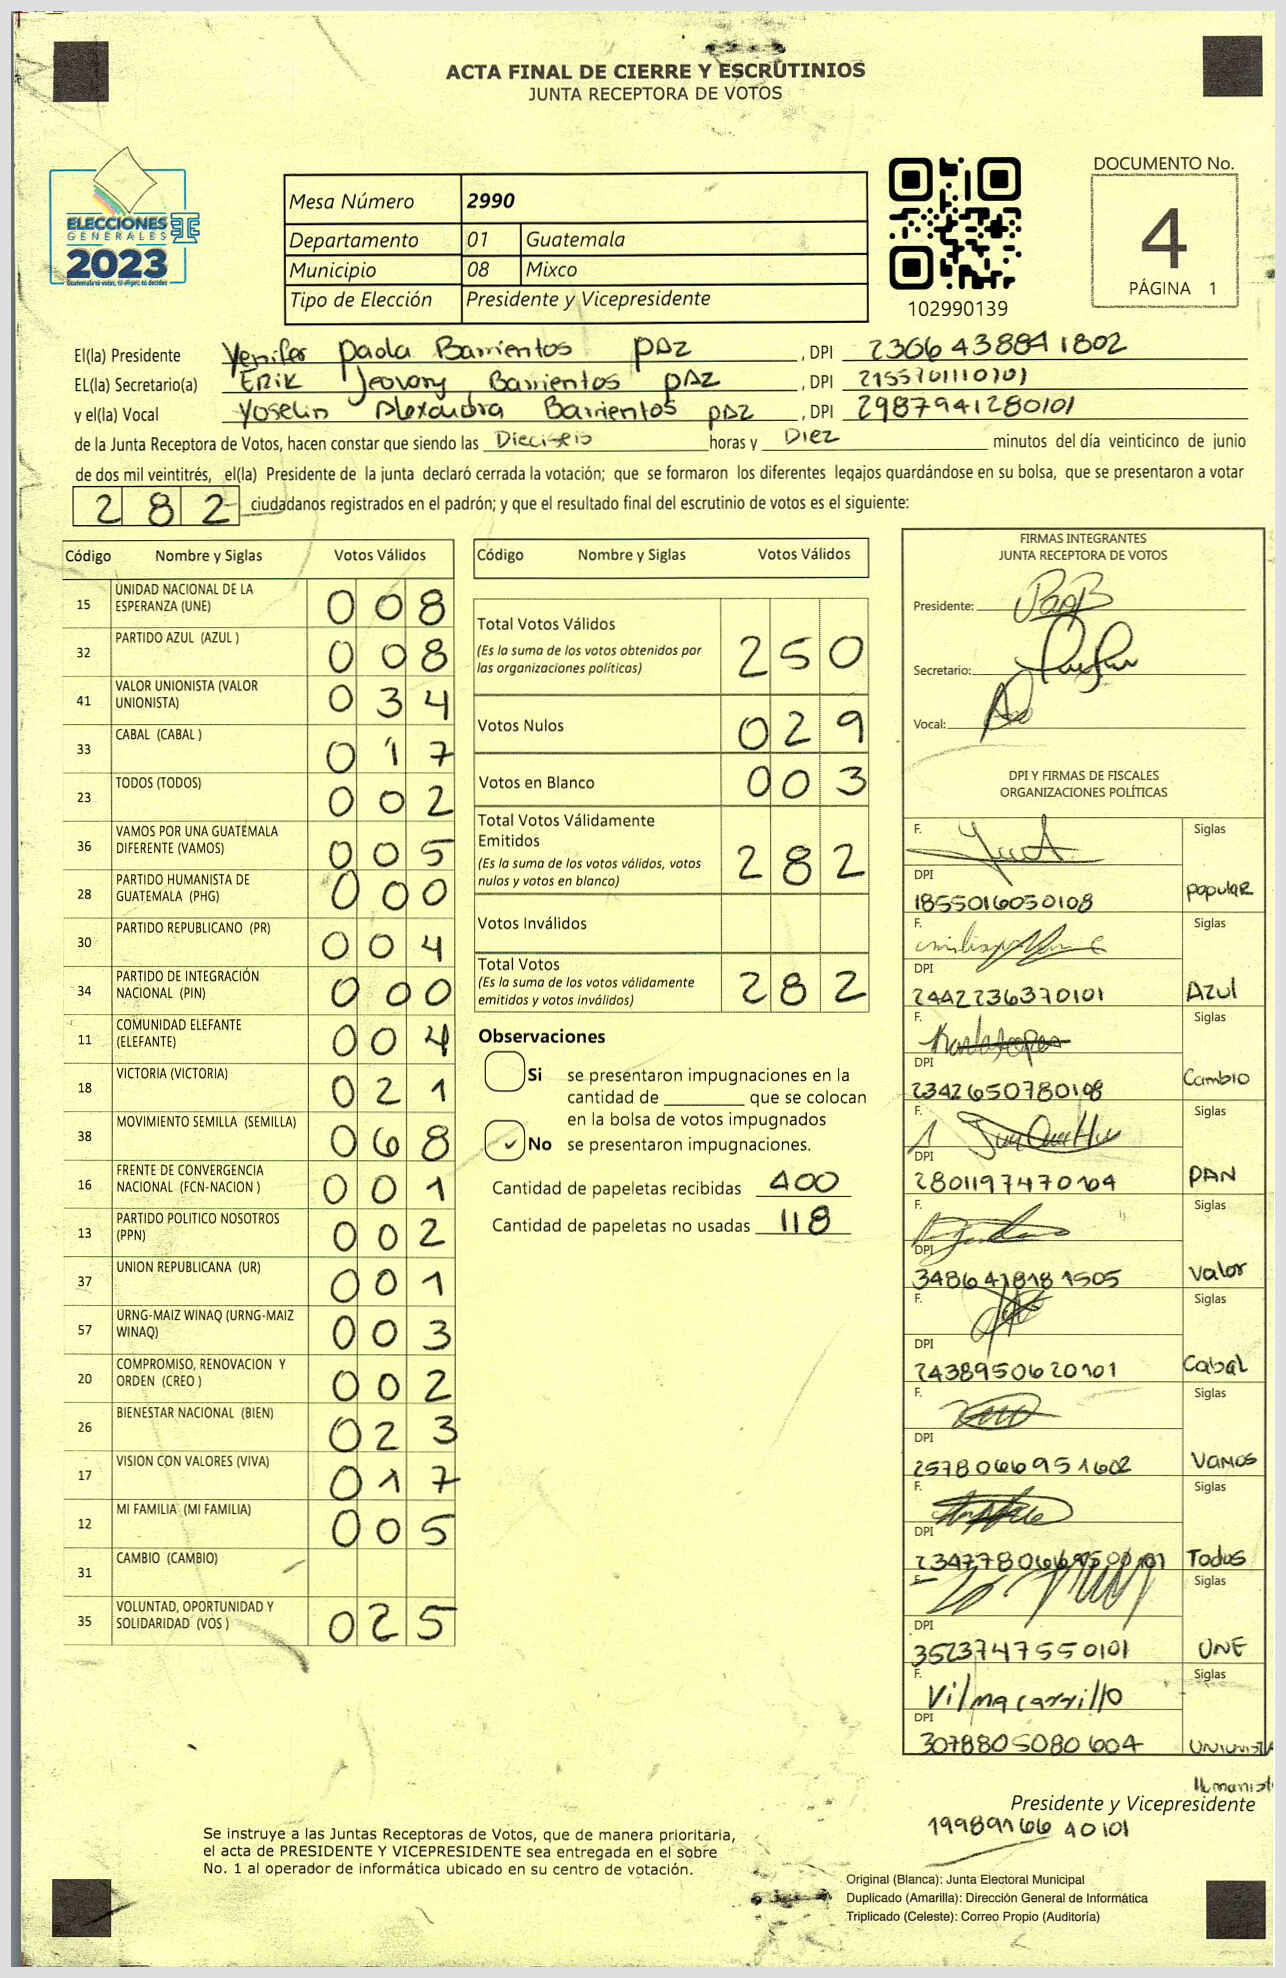 ACTA FINAL DE CIERRE Y ESCRUTINIOS
JUNTA RECEPTORA DE VOTOS
ELECCIONES
GENERALES
2023
Mesa Número 2990
Departamento 01 Guatemala
Municipio 08 Mixco
Tipo de Elección Presidente y Vicepresidente
102990139
DOCUMENTO No.
4
PÁGINA 1
El(la) Presidente Yenifer Paola Barrientos paz , DPI 2306438841802
EL(la) Secretario(a) Erik Jeovany Barrientos paz , DPI 2155701110101
y el(la) Vocal Yoselin Alexandra Barrientos paz , DPI 2987941280101
de la Junta Receptora de Votos, hacen constar que siendo las Dieciseis horas y Diez minutos del día veinticinco de junio
de dos mil veintitrés, el(la) Presidente de la junta declaró cerrada la votación; que se formaron los diferentes legajos guardándose en su bolsa, que se presentaron a votar
282 ciudadanos registrados en el padrón; y que el resultado final del escrutinio de votos es el siguiente:
Código Nombre y Siglas Votos Válidos
15 UNIDAD NACIONAL DE LA ESPERANZA (UNE) 008
32 PARTIDO AZUL (AZUL ) 008
41 VALOR UNIONISTA (VALOR UNIONISTA) 034
33 CABAL (CABAL ) 017
23 TODOS (TODOS) 002
36 VAMOS POR UNA GUATEMALA DIFERENTE (VAMOS) 005
28 PARTIDO HUMANISTA DE GUATEMALA (PHG) 000
30 PARTIDO REPUBLICANO (PR) 004
34 PARTIDO DE INTEGRACIÓN NACIONAL (PIN) 000
11 COMUNIDAD ELEFANTE (ELEFANTE) 004
18 VICTORIA (VICTORIA) 021
38 MOVIMIENTO SEMILLA (SEMILLA) 068
16 FRENTE DE CONVERGENCIA NACIONAL (FCN-NACION ) 001
13 PARTIDO POLITICO NOSOTROS (PPN) 002
37 UNION REPUBLICANA (UR) 001
57 URNG-MAIZ WINAQ (URNG-MAIZ WINAQ) 003
20 COMPROMISO, RENOVACION Y ORDEN (CREO ) 002
26 BIENESTAR NACIONAL (BIEN) 023
17 VISION CON VALORES (VIVA) 017
12 MI FAMILIA (MI FAMILIA) 005
31 CAMBIO (CAMBIO)
35 VOLUNTAD, OPORTUNIDAD Y SOLIDARIDAD (VOS ) 025
Código Nombre y Siglas Votos Válidos
Total Votos Válidos 250
(Es la suma de los votos obtenidos por
las organizaciones políticas)
Votos Nulos 029
Votos en Blanco 003
Total Votos Válidamente
Emitidos 282
(Es la suma de los votos válidos, votos
nulos y votos en blanco)
Votos Inválidos
Total Votos 282
(Es la suma de los votos válidamente
emitidos y votos inválidos)
Observaciones
Si se presentaron impugnaciones en la
cantidad de ________ que se colocan
en la bolsa de votos impugnados
No se presentaron impugnaciones.
Cantidad de papeletas recibidas 400
Cantidad de papeletas no usadas 118
FIRMAS INTEGRANTES
JUNTA RECEPTORA DE VOTOS
Presidente:
Secretario:
Vocal:
DPI Y FIRMAS DE FISCALES
ORGANIZACIONES POLÍTICAS
F. Siglas
DPI
1855016050108 popular
F. Siglas
DPI
2442236370101 Azul
F. Siglas
DPI
2342650780108 Cambio
F. Siglas
DPI
2801197470104 PAN
F. Siglas
DPI
3486418181505 Valor
F. Siglas
DPI
2438950620101 Cabal
F. Siglas
DPI
2578066951602 Vamos
F. Siglas
DPI
Todos
F. Siglas
DPI
3523747550101 UNE
F. Vilma carrillo Siglas
DPI
3078805080604 Unionista
Humanist
Presidente y Vicepresidente
1998916640101
Se instruye a las Juntas Receptoras de Votos, que de manera prioritaria,
el acta de PRESIDENTE Y VICEPRESIDENTE sea entregada en el sobre
No. 1 al operador de informática ubicado en su centro de votación.
Original (Blanca): Junta Electoral Municipal
Duplicado (Amarilla): Dirección General de Informática
Triplicado (Celeste): Correo Propio (Auditoría)